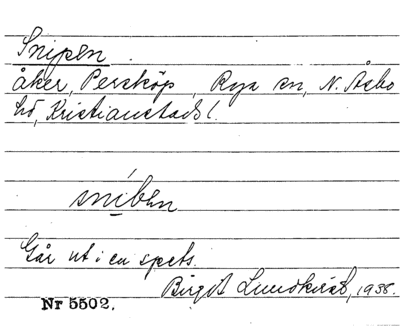 Snipen
åker, Perstorp, Rya sn, N. Åsbo
hd, Kristianstads l.
sniben
Går ut i en spets.
Birgit Lundkvist, 1938.
Nr 5502.